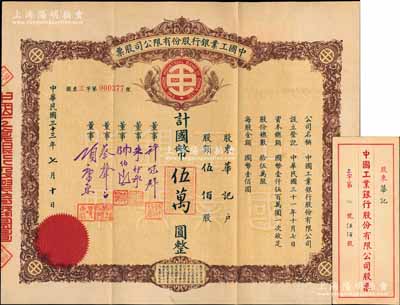 上海阳明拍卖
中國工業銀行股份有限公司股票
股東三字第000377號
公司名稱 中國工業銀行股份有限公司
設立登記 中華民國三十一年十月七日
資本總額 國幣壹仟伍百萬圓一次收足
股份總數 拾伍萬股
每股金額 國幣壹佰圓
股東華記戶
股額伍佰股
計國幣伍萬圓整
董事
董事
董事
董事
董事
中華民國三十三年七月十日
股東 華記
中國工業銀行股份有限公司股票